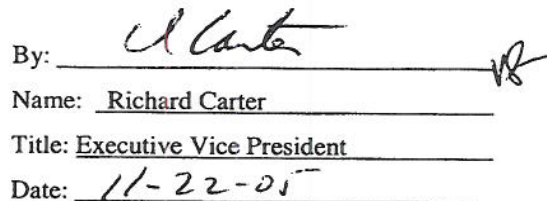 By: Carter
Name: Richard Carter
Title: Executive Vice President
Date: 11-22-05